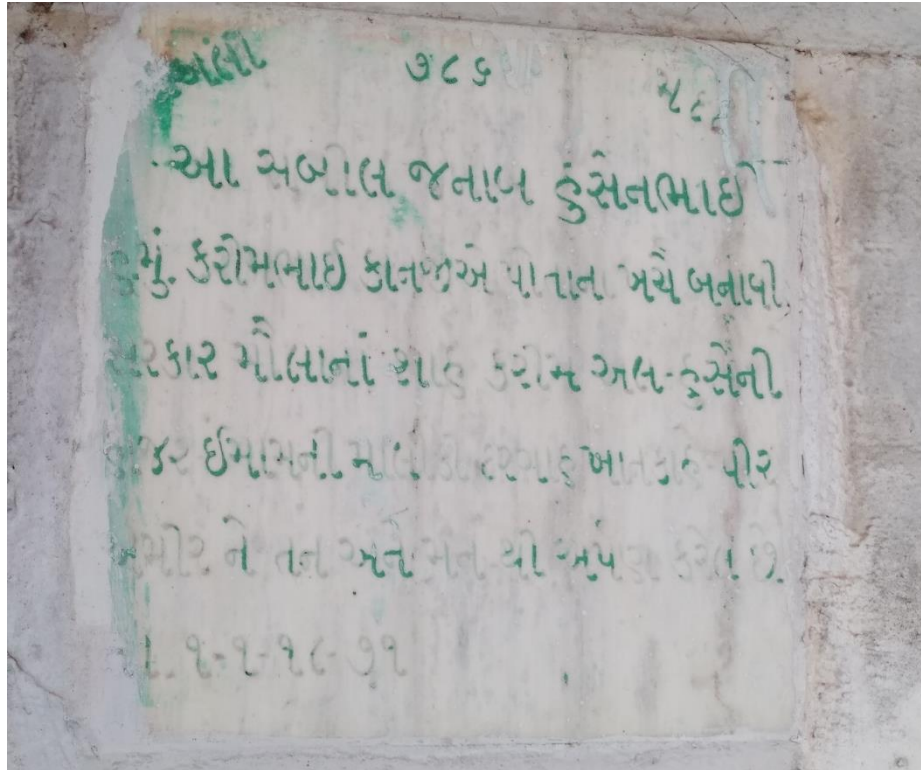 અલી ૭૮૬ મદદ
આ સબીલ જનાબ હુસેનભાઈ
કરીમભાઈ કાનજીએ પોતાના ખર્ચે બનાવી
સરકાર મૌલાનાં શાહ કરીમ અલ-હુસૈની
હાજર ઈમામની માલીકી દરગાહ ખાનકાહે પીર
ને તન અને મન થી અર્પણ કરેલ છે.
તા. ૧-૧-૧૯-૭૧